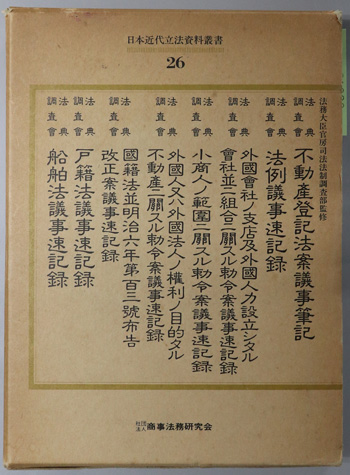 日本近代立法資料叢書
26
法務大臣官房司法法制調査部監修
法典調査會
不動產登記法案議事筆記
法典調査會
法例議事速記錄
法典調査會
外國會社ノ支店及外國人カ設立シタル
會社並ニ組合ニ關スル勅令案議事速記錄
法典調査會
小商人ノ範圍ニ關スル勅令案議事速記錄
法典調査會
外國人又ハ外國法人ノ權利ノ目的タル
不動產ニ關スル勅令案議事速記錄
法典調査會
國籍法並明治六年第百三號布告
改正案議事速記錄
法典調査會
戸籍法議事速記錄
法典調査會
船舶法議事速記錄
社団法人 商事法務研究会